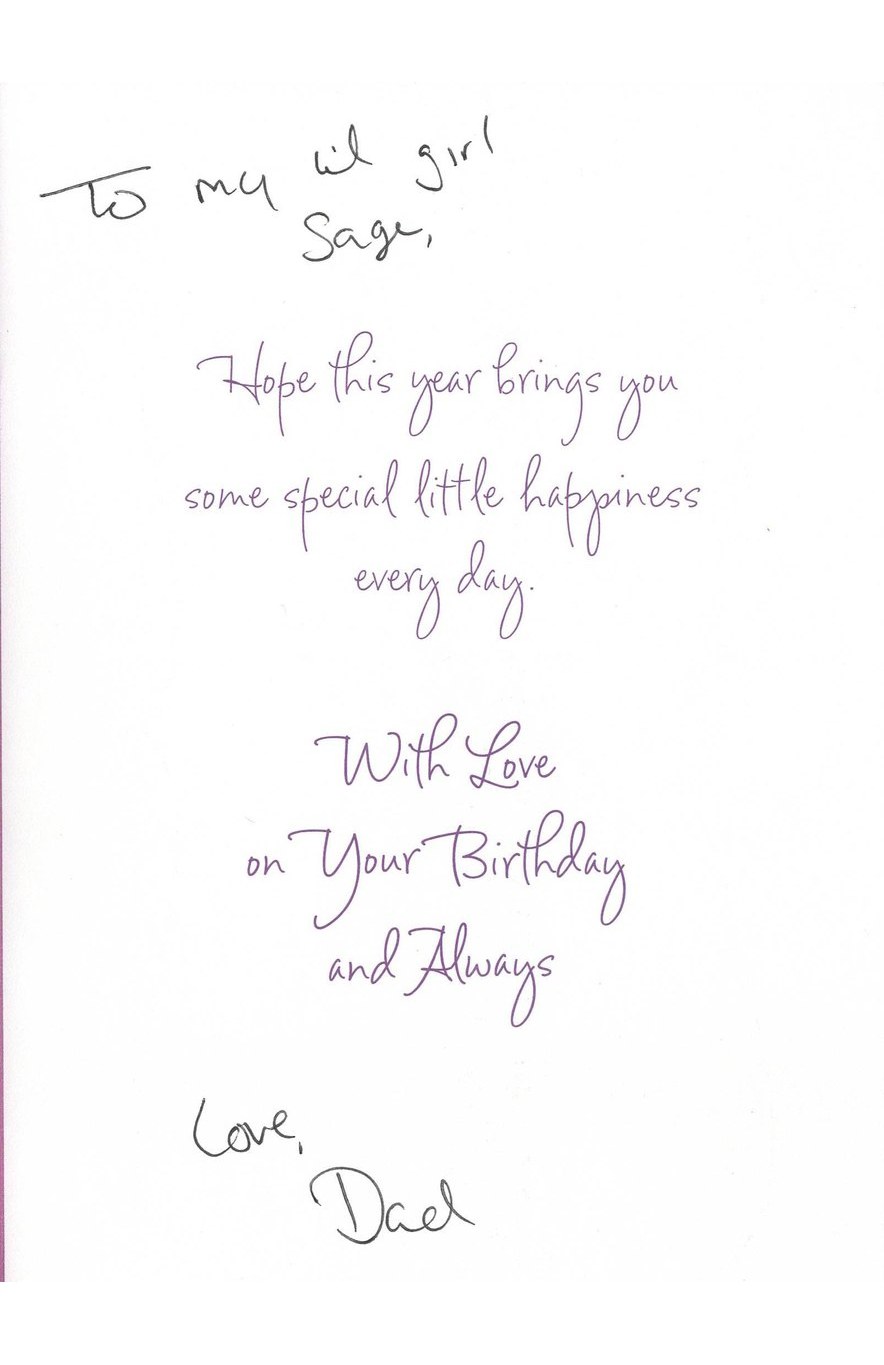 To my lil girl
Sage,
Hope this year brings you
some special little happiness
every day.
With Love
on Your Birthday
and Always
Love,
Dad